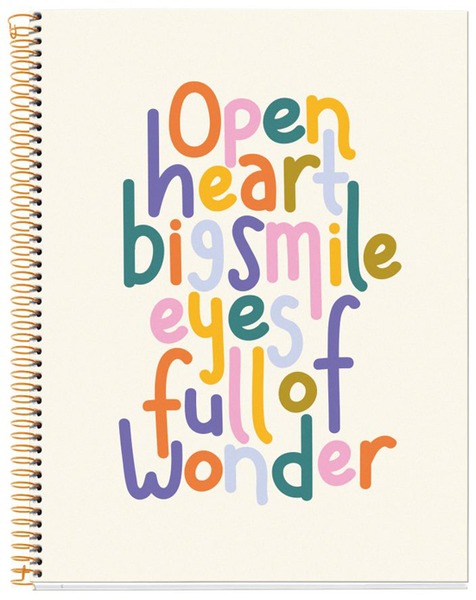 Open
heart
big smile
eyes of
full of
wonder